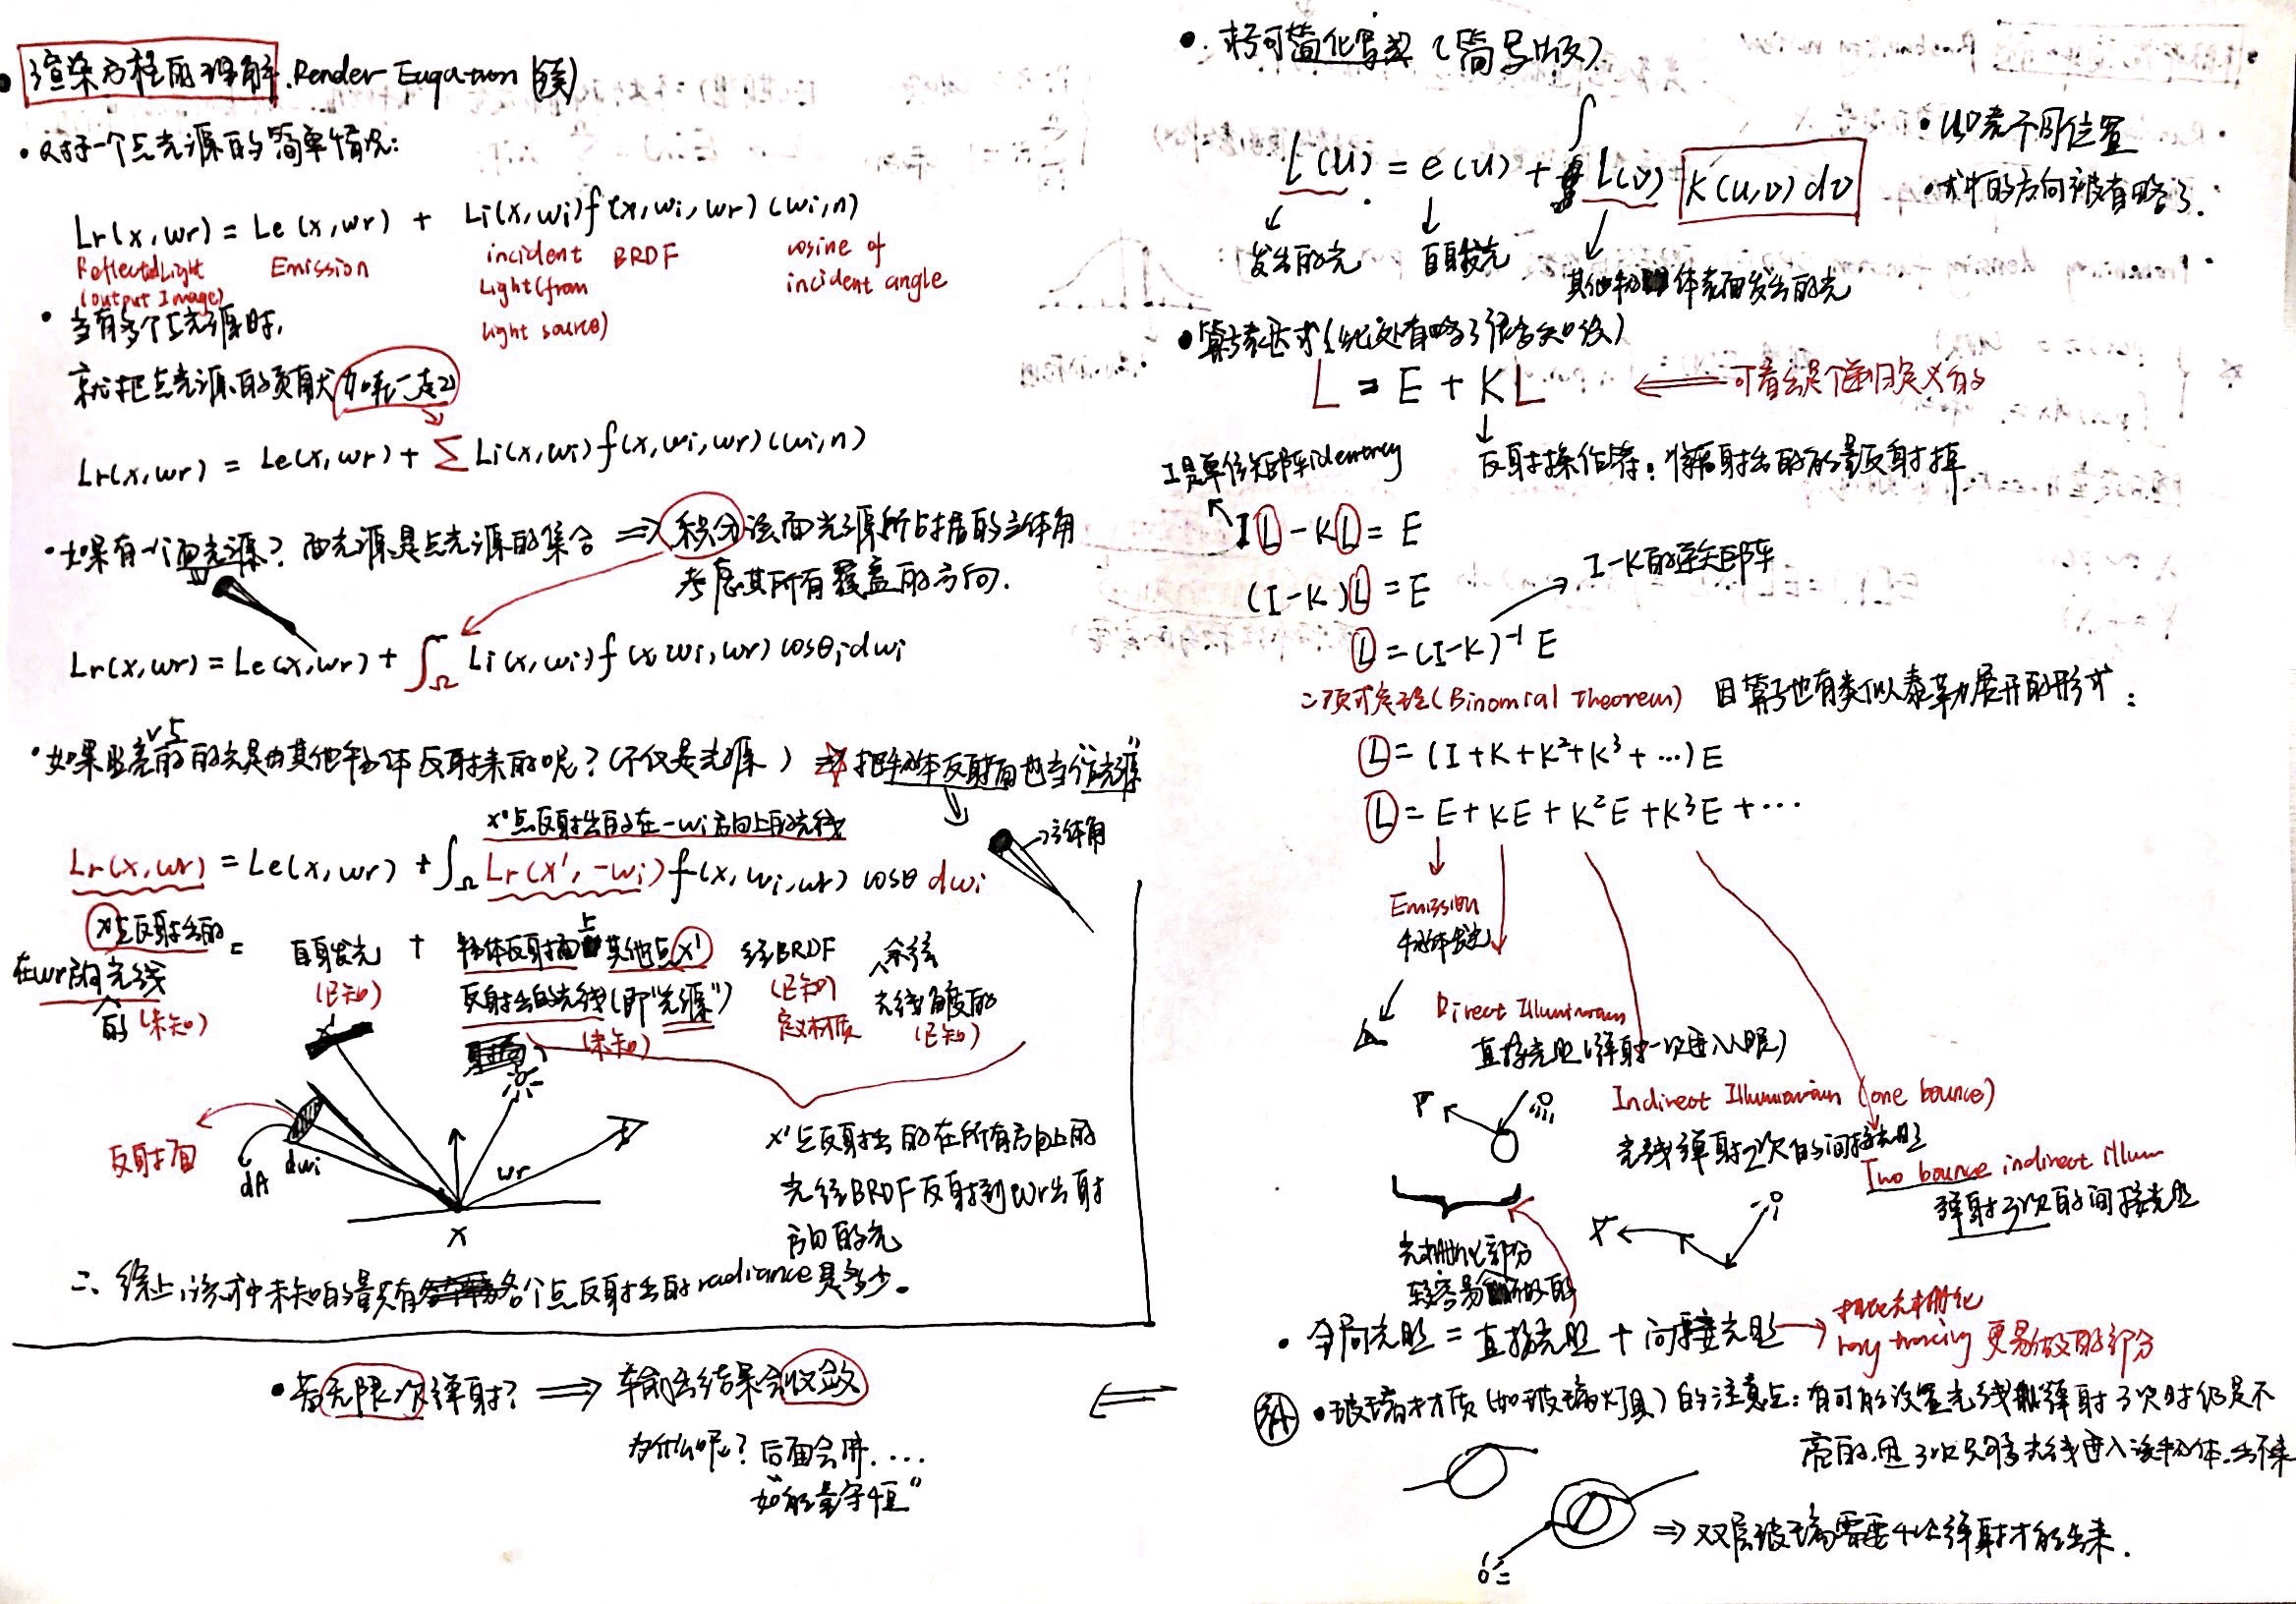 渲染方程的理解. Render Euqation (续)
• 对于一个点光源的简单情况:
Lr(x,wr) = Le(x,wr) + Li(x,wi) f(x,wi,wr) (wi,n)
Reflected Light (output Image)
Emission
incident Light (from light source)
BRDF
cosine of incident angle
• 当有多个点光源时,
就把点光源的贡献加在一起
Lr(x,wr) = Le(x,wr) + ∑ Li(x,wi) f(x,wi,wr) (wi,n)
• 如果有一个面光源? 面光源是点光源的集合 ⇒ 积分该面光源所占据的立体角
考虑其所有覆盖的方向.
Lr(x,wr) = Le(x,wr) + ∫Ω Li(x,wi) f(x,wi,wr) cosθi dwi
⇒ 把物体反射面也当作"光源"
x'点反射出的在-wi方向上的光线
立体角
Lr(x,wr) = Le(x,wr) + ∫Ω Lr(x',-wi) f(x,wi,wr) cosθ dwi
x点反射出的
在wr方向光线
的 (未知)
= 自身发光
(已知)
+ 物体反射面上其他点x'
反射出的光线(即"光源")
(未知)
经BRDF
(已知)
定义材质
入余弦
光线角度的
(已知)
x'
反射面
dA
dwi
wr
x
x'点反射出的在所有方向上的
光经BRDF反射到wr出射
方向的光
综上,该式中未知的量只有各个点反射出的radiance是多少.
• 若无限次弹射? ⇒ 输出结果会收敛
为什么呢? 后面会讲....
如"能量守恒"
• 求可简化写为 (简写版)
l(u) = e(u) + ∫ l(v) K(u,v) dv
发出的光
自身发光
其他物体表面发出的光
• u,v表不同位置
• 式中的方向被省略了.
• 算子表达式(此处省略了很多知识)
L = E + KL ⇐ 可看出是个递归定义的
反射操作符: 将辐射出的能量反射掉.
I是单位矩阵 identity
IL - KL = E
(I-K)L = E
I-K的逆矩阵
L = (I-K)⁻¹ E
二项式定理(Binomial Theorem) 因算子也有类似泰勒展开的形式:
L = (I + K + K² + K³ + ...) E
L = E + KE + K²E + K³E + ...
Emission
物体发光
Direct Illumination
直接光照(弹射一次进入人眼)
Indirect Illumination (one bounce)
光线弹射2次的间接光照
Two bounce indirect illum
弹射3次的间接光照
光栅化部分
较容易做的
• 全局光照 = 直接光照 + 间接光照 →
相比光栅化
ray tracing 更易做的部分
• 玻璃材质(如玻璃灯具)的注意点: 有可能设置光线弹射3次时仍是不
亮的,因3次只够光线进入该物体,出不来
⇒ 双层玻璃需要4次弹射才能出来.